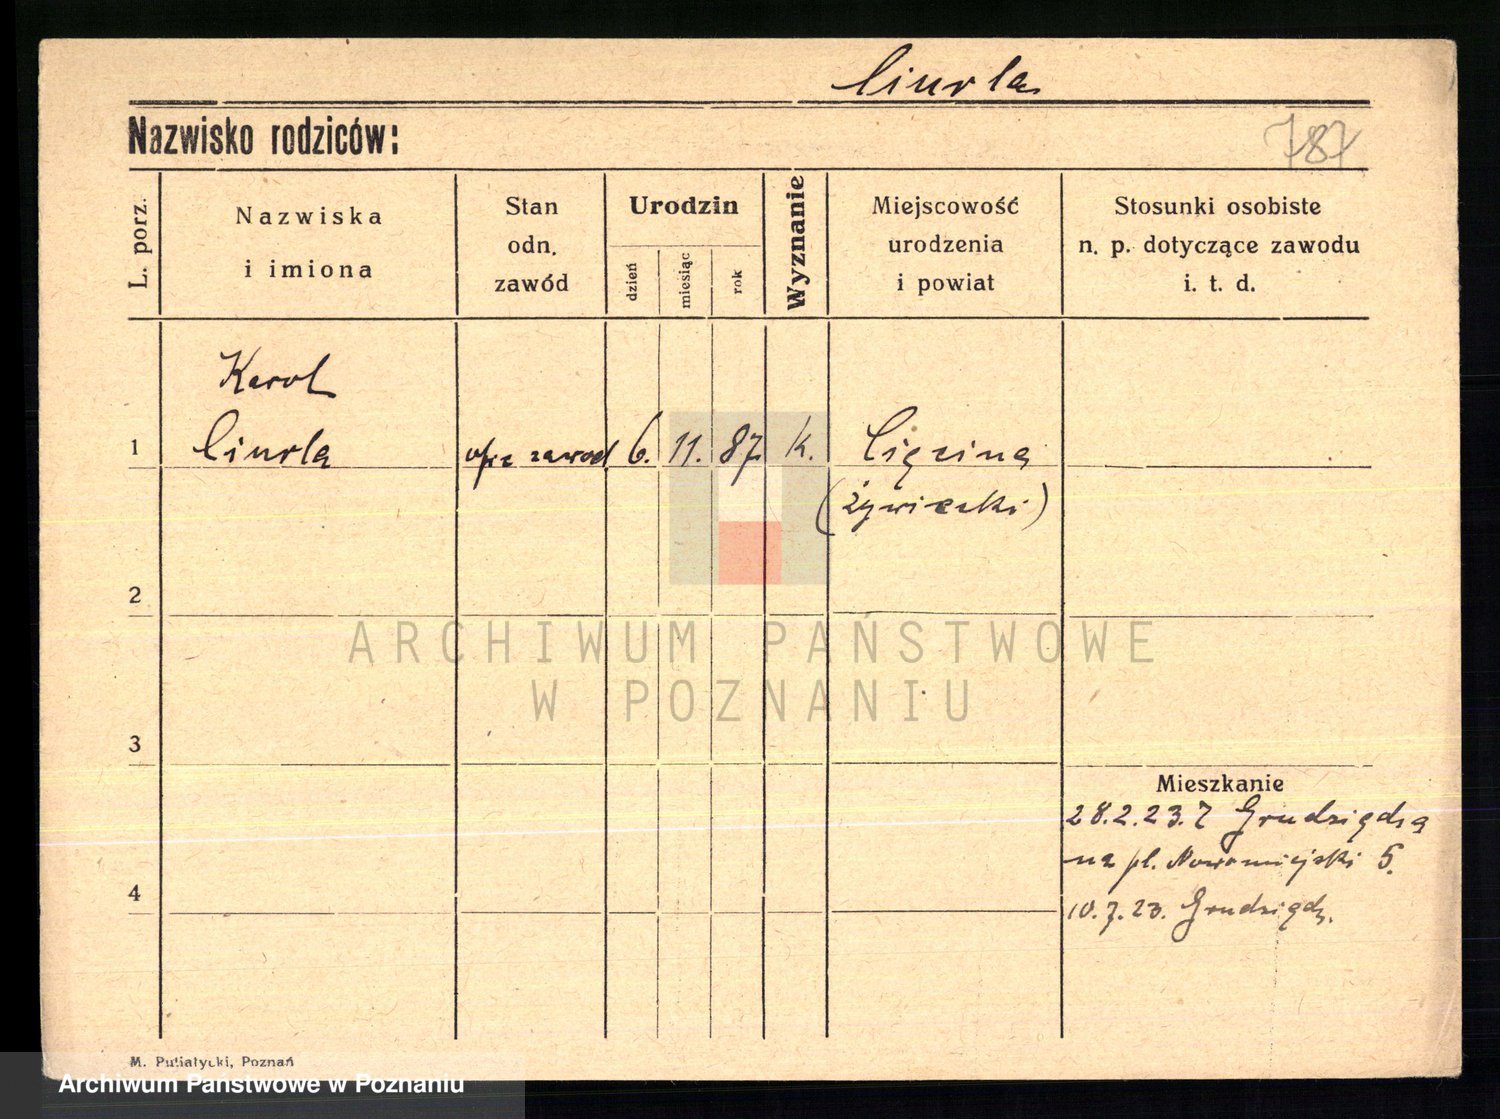 Ciurla
Nazwisko rodziców:
787
L. porz.
Nazwiska
i imiona
Stan
odn.
zawód
Urodzin
dzień
miesiąc
rok
Wyznanie
Miejscowość
urodzenia
i powiat
Stosunki osobiste
n. p. dotyczące zawodu
i. t. d.
Karol
1 Ciurla zawod 6. 11. 87. k. Cięcina
(żywiecki)
2
ARCHIWUM PAŃSTWOWE
W POZNANIU
3
Mieszkanie
28.2.23. z Grudziądza
na pl. Nowomiejski 5.
4
10.7.23. Grudziądz.
M. Putiatycki, Poznań
Archiwum Państwowe w Poznaniu